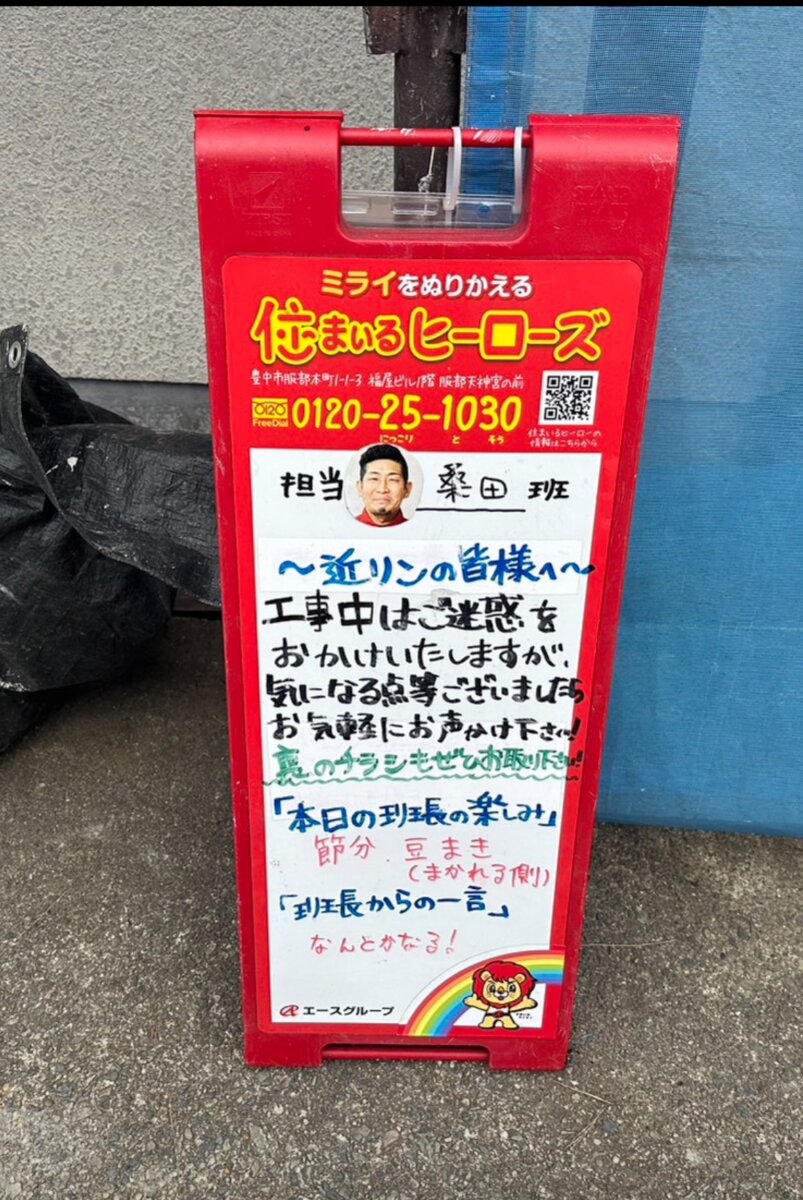 ミライをぬりかえる
住まいるヒーローズ
豊中市服部本町1-1-3 福屋ビル1階 服部天神宮の前
0120 FreeDial 0120-25-1030
にっこり と そう
住まいるヒーローの
情報はこちらから
担当 桑田 班
～近リンの皆様へ～
工事中はご迷惑を
おかけいたしますが、
気になる点等ございましたら
お気軽にお声かけ下さい!
裏のチラシもぜひお取り下さい!
「本日の班長の楽しみ」
節分 豆まき
(まかれる側)
「班長からの一言」
なんとかなる!
エースグループ